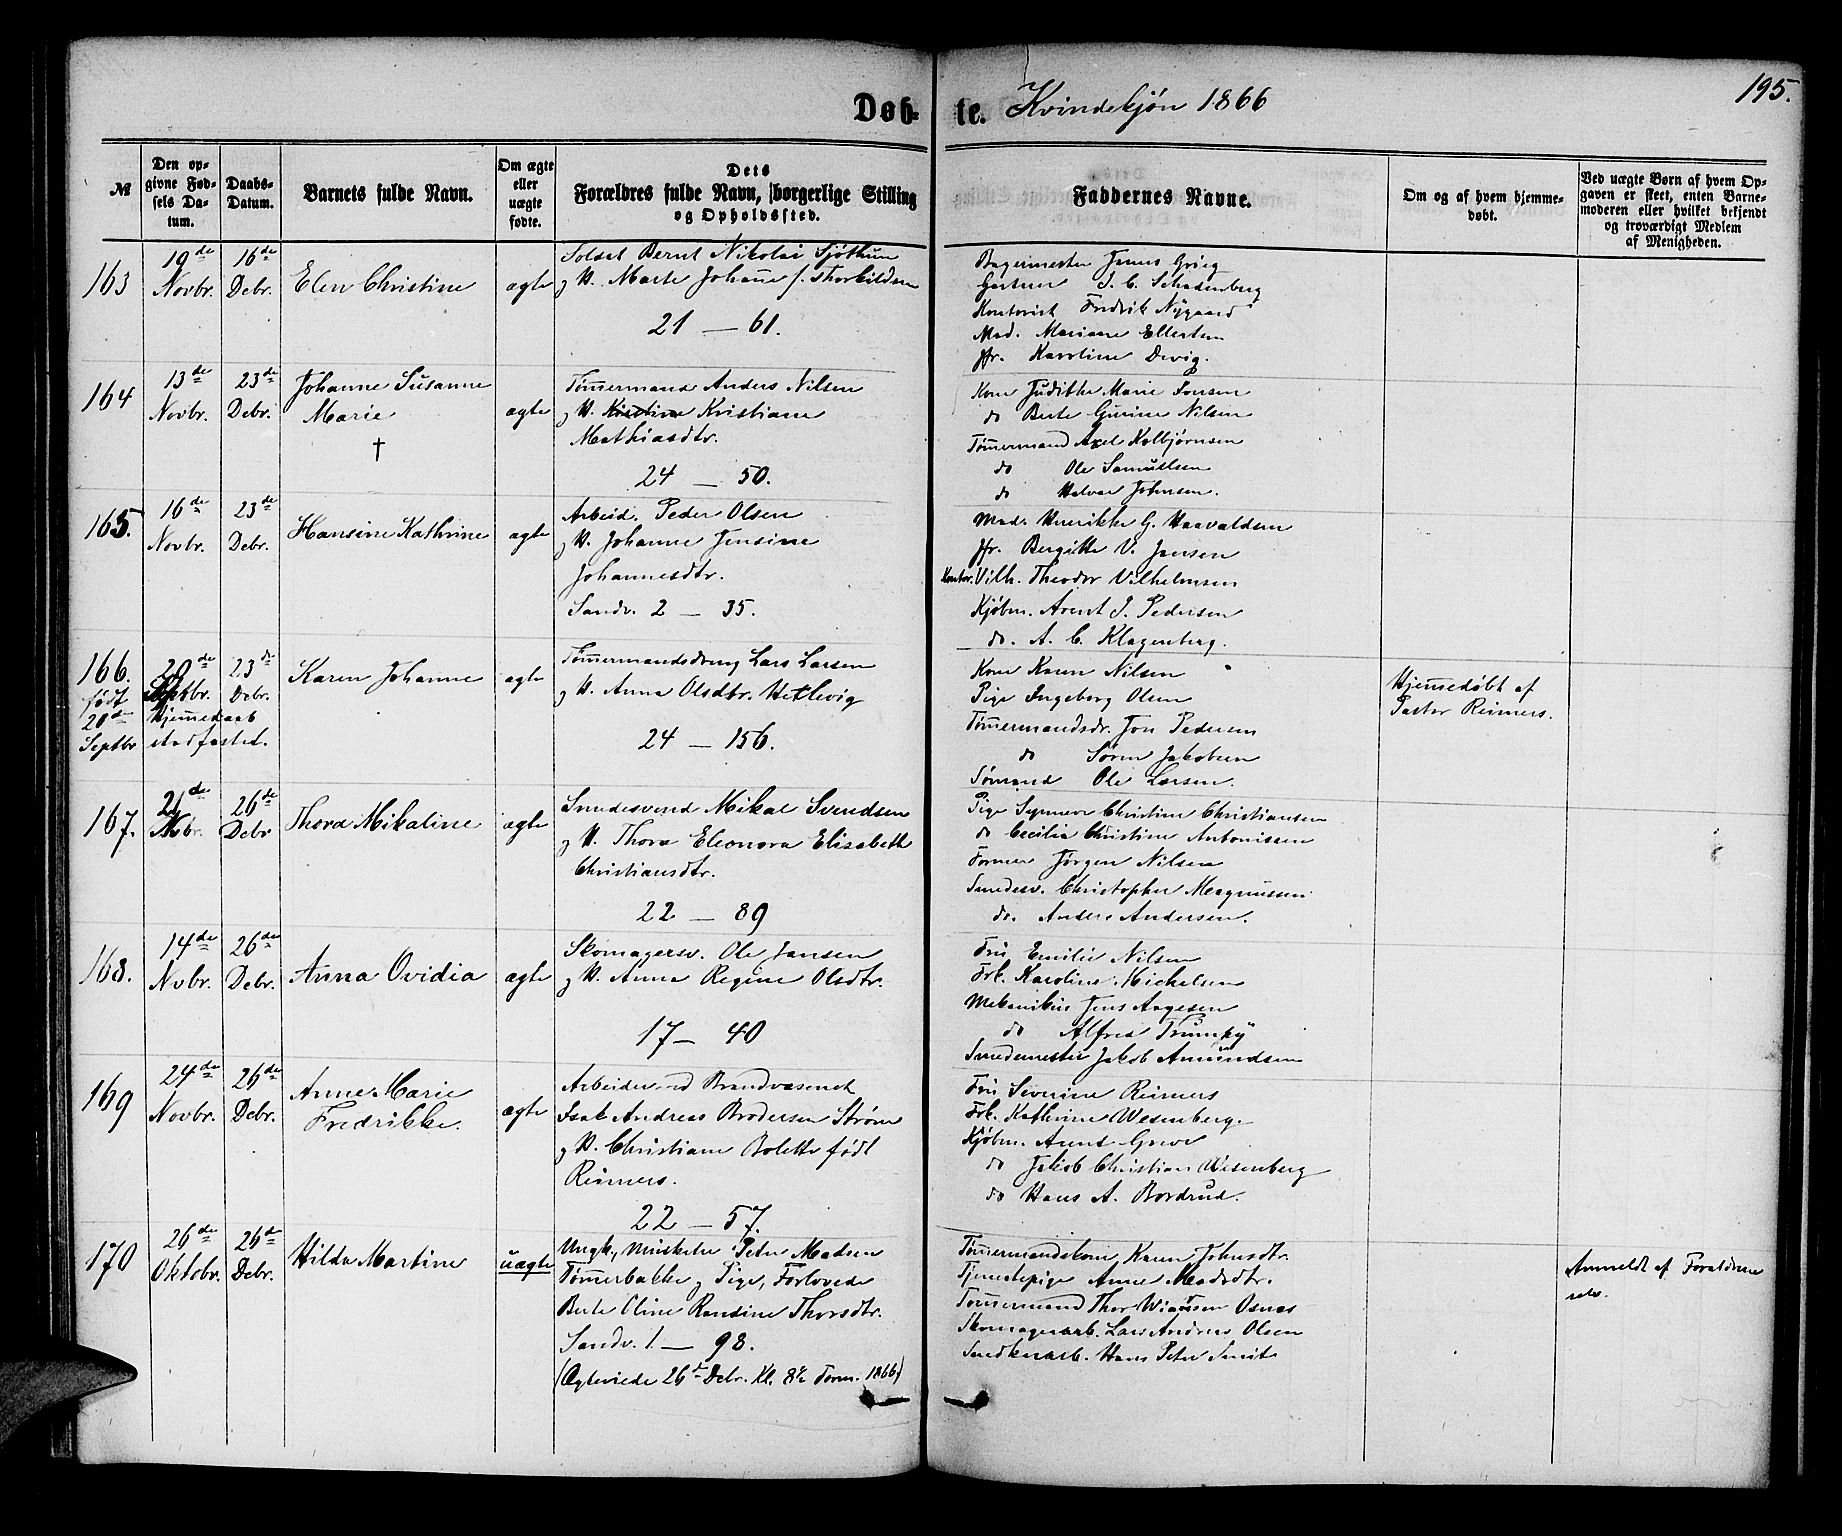 Døb-te. Kvindekjøn 1866
195.
№
Den opgivne Fødsels Datum.
Daabs-Datum.
Barnets fulde Navn.
Om ægte eller uægte fødte.
Dets Forældres fulde Navn, borgerlige Stilling og Opholdssted.
Faddernes Navne.
Om og af hvem hjemmedøbt.
Ved uægte Børn af hvem Opgaven er skeet, enten Barnemoderen eller hvilket bekjendt og troværdigt Medlem af Menigheden.
163
19de Novbr.
16de Debr.
Elen Christine
ægte
Soldat Bernt Nikolai Sjøthun
og H. Marte Johanne f. Thorkildsen
21 — 61.
Bagermester James Grieg
Gartner J. C. Schadenberg
Kontorist Fredrik Nygaard
Mad. Mariane Ellertsen
Jfr. Karoline Devig.
164
13de Novbr.
23de Debr.
Johanne Susanne
Marie
†
ægte
Tømermand Anders Nilsen
og H. Kristiane
Mathiasdtr.
24 — 50.
Kone Judithe Marie Iversen
do Berte Gurine Nilsen
Tømermand Axel Kolbjørnsen
do Ole Samuelsen
do Halvor Johnsen.
165.
16de Novbr.
23de Debr.
Hansine Kathrine
ægte
Arbeid. Peder Olsen
og H. Johanne Jensine
Johannesdtr.
Sandv. 2 — 35.
Mad. Henrikke G. Haavaldsen
Jfr. Bergitte V. Jansen
Kontor. Vilh. Theodor Vilhelmsen
Kjøbm. Arent J. Pedersen
do. A. C. Klagenberg.
166.
født
20de
Septbr
20de Septbr.
23de Debr.
Hjemedaab
stadfæstet.
Karen Johanne
ægte
Tømermandsdreng Lars Larsen
og H. Anna Olsdtr. Hetlevig
24 — 156.
Kone Karen Nilsen
Pige Ingeborg Olsen
Tømermandsdr. Jon Pedersen
do Søren Jakobsen
Sømand Ole Larsen.
Hjemedøbt af
Pastor Reimers.
167.
21de Novbr.
26de Debr
Thora Mikaline
ægte
Smedesvend Mikal Svendsen
og H. Thora Eleonora Elisabeth
Christiansdtr.
22 — 89
Pige Synneve Christine Christiansen
do Cecilia Christine Antonissen
Former Jørgen Nilsen
Smedesv. Christopher Magnussen
do. Anders Andersen.
168.
14de Novbr.
26de Debr.
Anna Ovidia
ægte
Skomagersv. Ole Jansen
og H. Anna Regine Olsdtr.
17 — 40
Fru Emilie Nilsen
Frk. Karoline Michelsen
Mekanikus Jens Aagesen
do Alfred Trumpy
Smedemester Jakob Amundsen
169
24de Novbr.
26de Debr.
Anne Marie
Fredrikke.
ægte
Arbeider ved Brandvæsenet
Isak Andreas Brodersen Strøm
og H. Christiane Bolette født
Reimers.
22 — 57.
Fru Severine Reimers
Frk. Kathrine Wesenberg.
Kjøbm. Arent Greve
do Jakob Christian Wesenberg
do Hans A. Bordrud.
170
26de Oktobr.
26de Debr.
Hilda Martine
uægte
Ungk., Musketer Peter Madsen
Tømerbakke og Pige, Forlovede
Berte Oline Randine Thorsdtr.
Sandv. 1 — 98.
(Ægteviede 26de Debr. Kl. 8½ Form. 1866)
Tømermandskone Karen Johnsdtr.
Tjenestepige Anne Madsdtr.
Tømermand Thor Osnes
Skomagerarb. Lars Andreas Olsen
Snedkerarb. Hans Peter Smit
Anmeldt af Forældrene
selv.